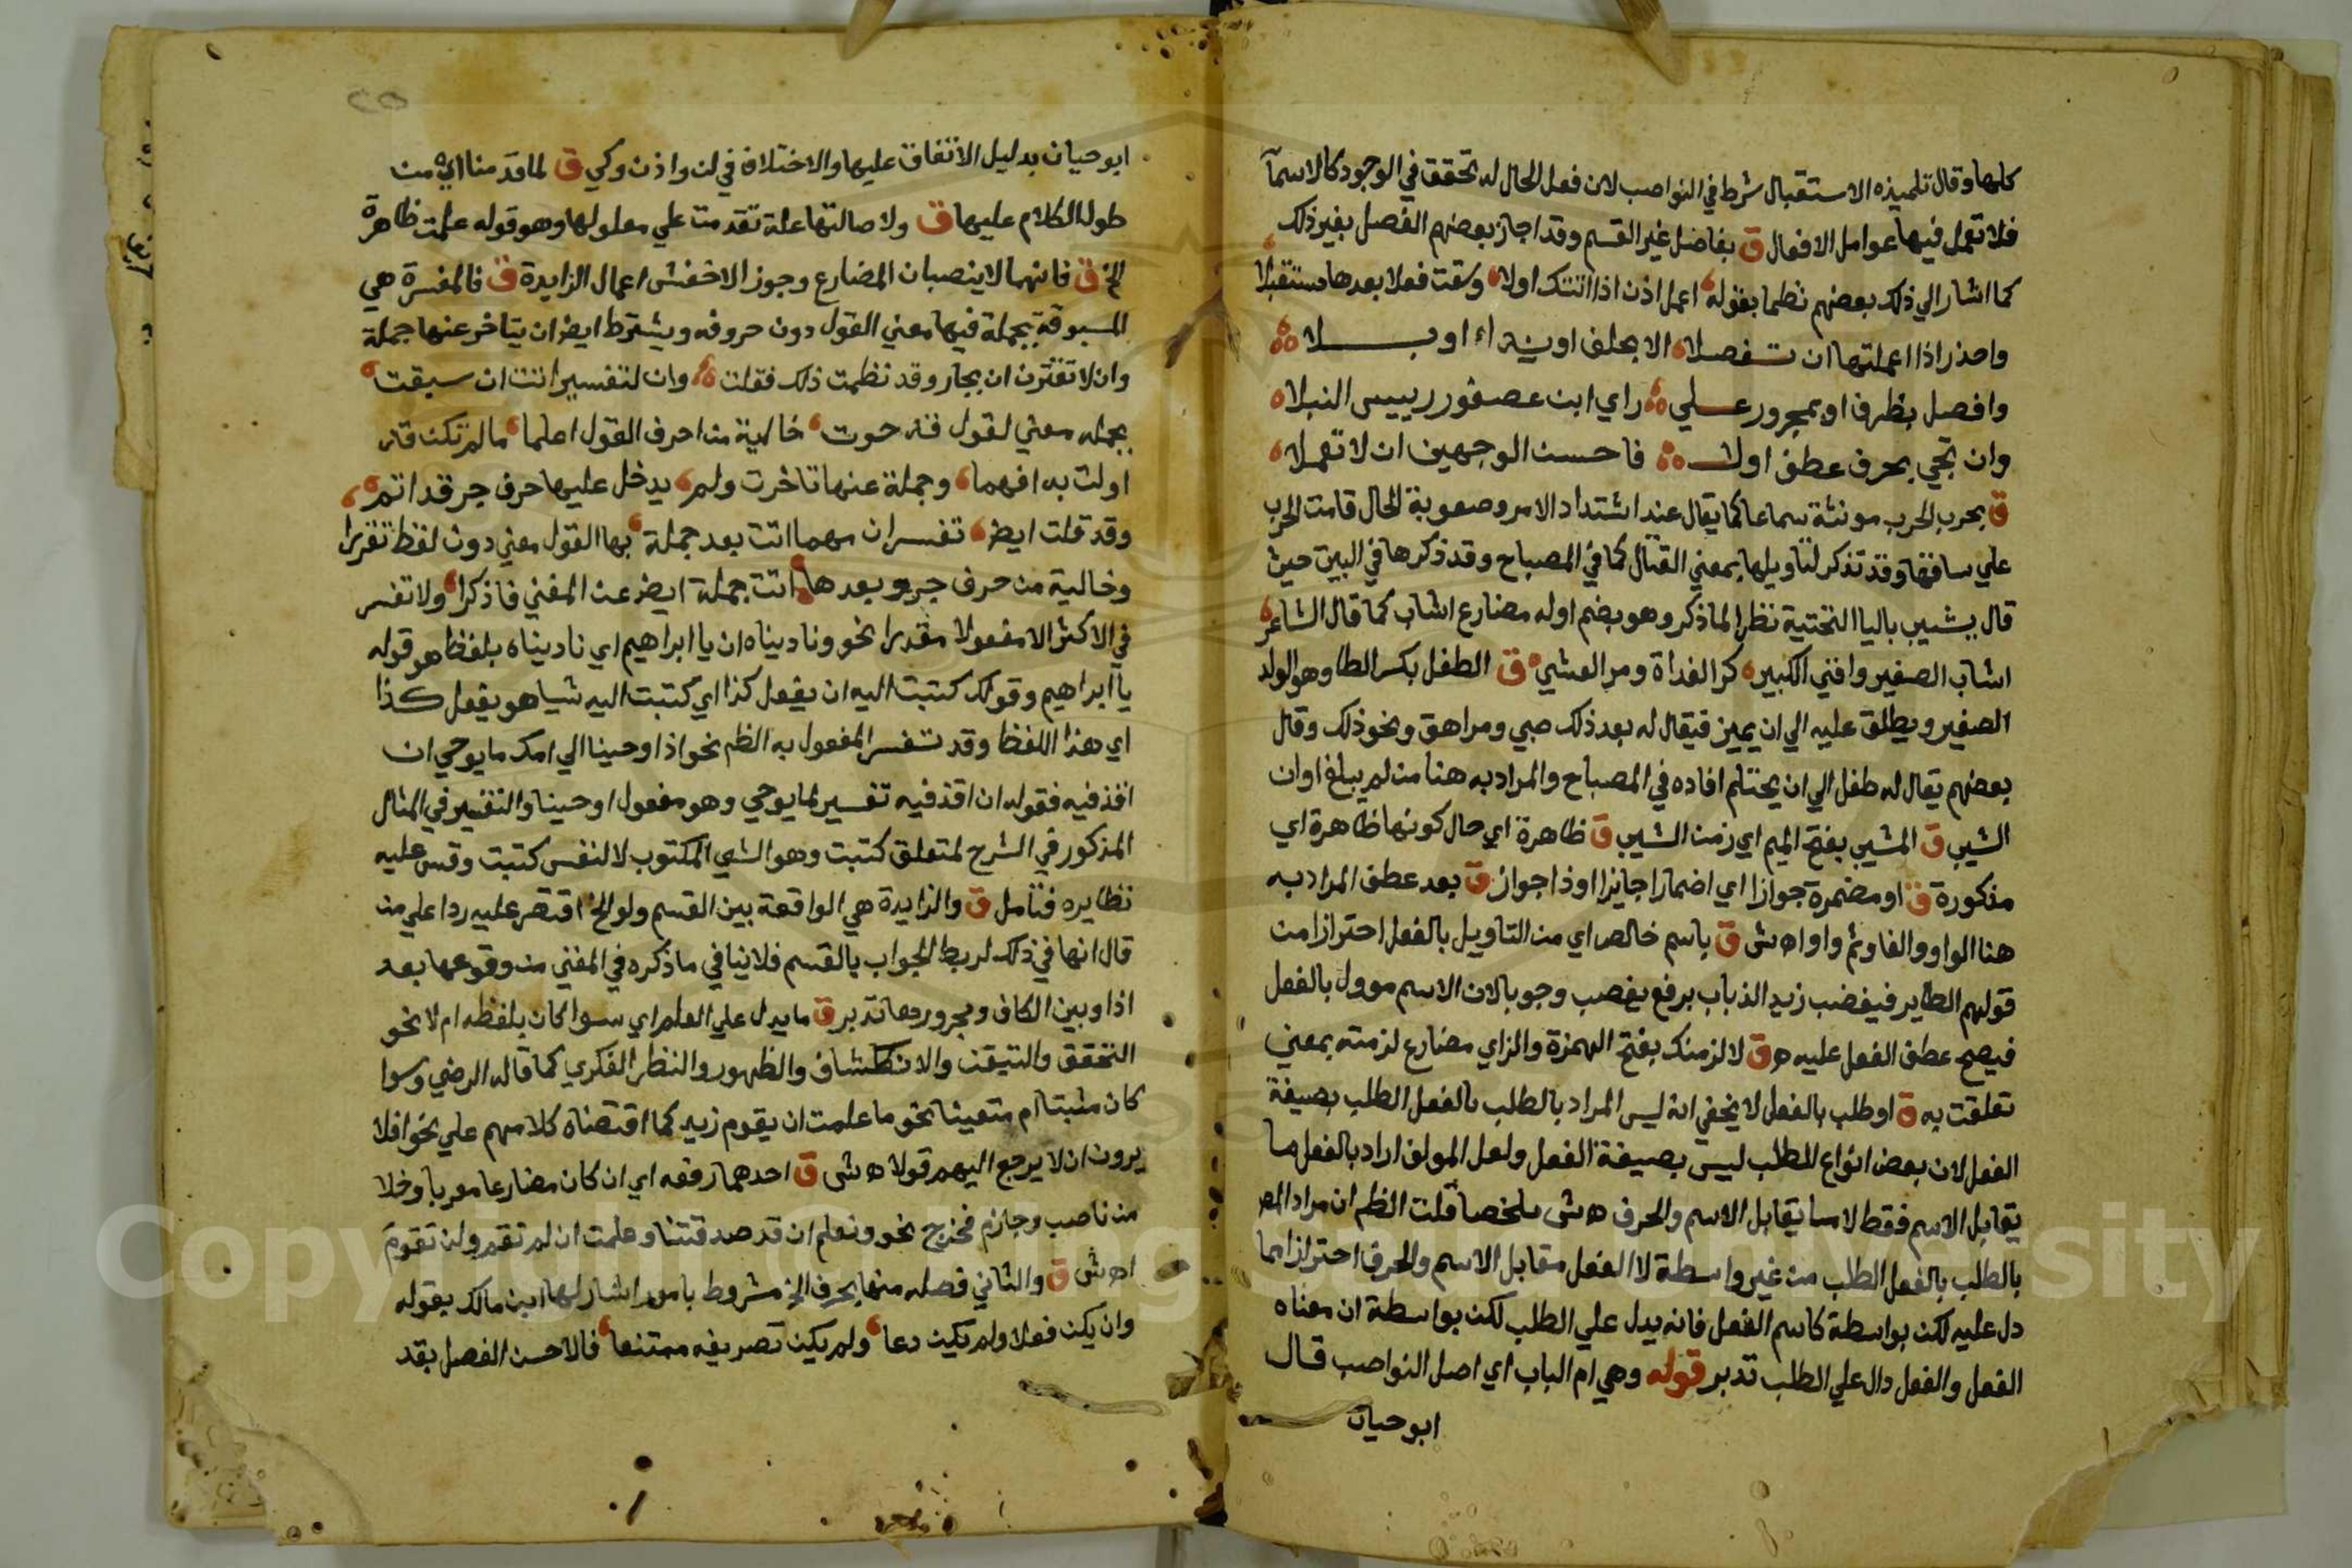 كلها وقال تلميذه الاستقبال شرط في النواصب لان فعل الحال له تحقق في الوجود كالاسمآ
فلا تعمل فيها عوامل الافعال ق بفاضل غير القسم وقد اجاز بعضهم الفصل بغير ذلك
كما اشار الي ذلك بعضهم نظما بقوله اعمل اذن اذا اتتك اولا وسقت فعلا بعدها مستقبلا
واحذر اذا اعملتها ان تفصلا الا بحلف او نداء او بلا
وافصل بظرف او بمجرور علي راي ابن عصفور رييس النبلاه
وان تجي بحرف عطف اولا فاحسن الوجهين ان لا تعملا
ق بحرب الحرب مونثة سماعا كما يقال عند اشتداد الامر وصعوبة الحال قامت الحرب
علي ساقها وقد تذكر لتاويلها بمعني القتال كما في المصباح وقد ذكرها في البيت حيث
قال يشيب باليا التحتية نظرا لما ذكر وهو بضم اوله مضارع اشاب كما قال الشاعر
اشاب الصغير وافني الكبير كر الغداة ومر العشي ق الطفل بكسر الطا وهو الولد
الصغير ويطلق عليه الي ان يميز فيقال له بعد ذلك صبي ومراهق ونحو ذلك وقال
بعضهم يقال له طفل الي ان يحتلم افاده في المصباح والمراد به هنا من لم يبلغ اوان
الشيب ق المشيب بفتح الميم اي زمن الشيب ق ظاهرة اي حال كونها ظاهرة اي
مذكورة ق او مضمرة جوازا اي اضمارا جايزا او ذا جواز ق بعد عطف المراد به
هنا الواو والفا وثم واو اه ش ق باسم خالص اي من التاويل بالفعل احترازا من
قولهم الطاير فيغضب زيد الذباب برفع يغضب وجوبا لان الاسم موول بالفعل
فيصح عطف الفعل عليه ه ق لالزمنك بفتح الهمزة والزاي مضارع لزمته بمعني
تعلقت به ق او طلب بالفعل لا يخفي انه ليس المراد بالطلب بالفعل الطلب بصيغة
الفعل لان بعض انواع الطلب ليس بصيغة الفعل ولعل المولف اراد بالفعل ما
يقابل الاسم فقط لا ما يقابل الاسم والحرف ه ش ملخصا قلت الظم ان مراد المص
بالطلب بالفعل الطلب من غير واسطة لا الفعل مقابل الاسم والحرف احترازا عما
دل عليه لكن بواسطة كاسم الفعل فانه يدل علي الطلب لكن بواسطة ان معناه
الفعل والفعل دال علي الطلب تدبر قوله وهي ام الباب اي اصل النواصب قال
ابو حيان
ابو حيان بدليل الاتفاق عليها والاختلاف في لن واذن وكي ق لما قدمنا اي من
طول الكلام عليها ق ولاصالتها علة تقدمت علي معلولها وهو قوله عملت ظاهرة
الخ ق فانهما لا ينصبان المضارع وجوز الاخفش اعمال الزايدة ق فالمفسرة هي
المسبوقة بجملة فيها معني القول دون حروفه ويشترط ايض ان يتاخر عنها جملة
وان لا تقترن ان بجار وقد نظمت ذلك فقلت وان لتفسير اتت ان سبقت
بجمله معني لقول قد حوت خالية من احرف القول اعلما ما لم تكن قد
اولت به افهما وجملة عنها تاخرت ولم يدخل عليها حرف جر قد اتم
وقد قلت ايض تفسر ان مهما اتت بعد جملة بها القول معني دون لفظ تقررا
وخالية من حرف جر وبعدها اتت جملة ايض عن المغني فاذكرا ولا تفسر
في الاكثر الا مفعولا مقدرا نحو وناديناه ان يا ابراهيم اي ناديناه بلفظ هو قوله
يا ابراهيم وقولك كتبت اليه ان يفعل كذا اي كتبت اليه شيا هو يفعل كذا
اي هذا اللفظ وقد تفسر المفعول به الظم نحو اذ اوحينا الي امك ما يوحي ان
اقذفيه فقوله ان اقذفيه تفسير لما يوحي وهو مفعول اوحينا والتفسير في المثال
المذكور في الشرح لمتعلق كتبت وهو الشي المكتوب لا لنفس كتبت وقس عليه
نظايره فتامل ق والزايدة هي الواقعة بين القسم ولو الخ اقتصر عليه ردا علي من
قال انها في ذلك لربط الجواب بالقسم فلا ينافي ما ذكره في المغني من وقوعها بعد
اذا وبين الكاف ومجرورها تدبر ق ما يدل علي العلم اي سوا كان بلفظه ام لا نحو
التحقق والتيقن والانكشاف والظهور والنظر الفكري كما قاله الرضي وسوا
كان مثبتا ام منفيا نحو ما علمت ان يقوم زيد كما اقتضاه كلامهم علي نحو افلا
يرون ان لا يرجع اليهم قولا ه ش ق احدهما رفعه اي ان كان مضارعا معربا وخلا
من ناصب وجازم فخرج نحو ونعلم ان قد صدقتنا وعلمت ان لم تقم ولن تقوم
اه ش ق والثاني فصله منها بحرف الخ مشروط بامور اشار لها ابن مالك بقوله
وان يكن فعلا ولم يكن دعا ولم يكن تصريفه ممتنعا فالاحسن الفصل بقد